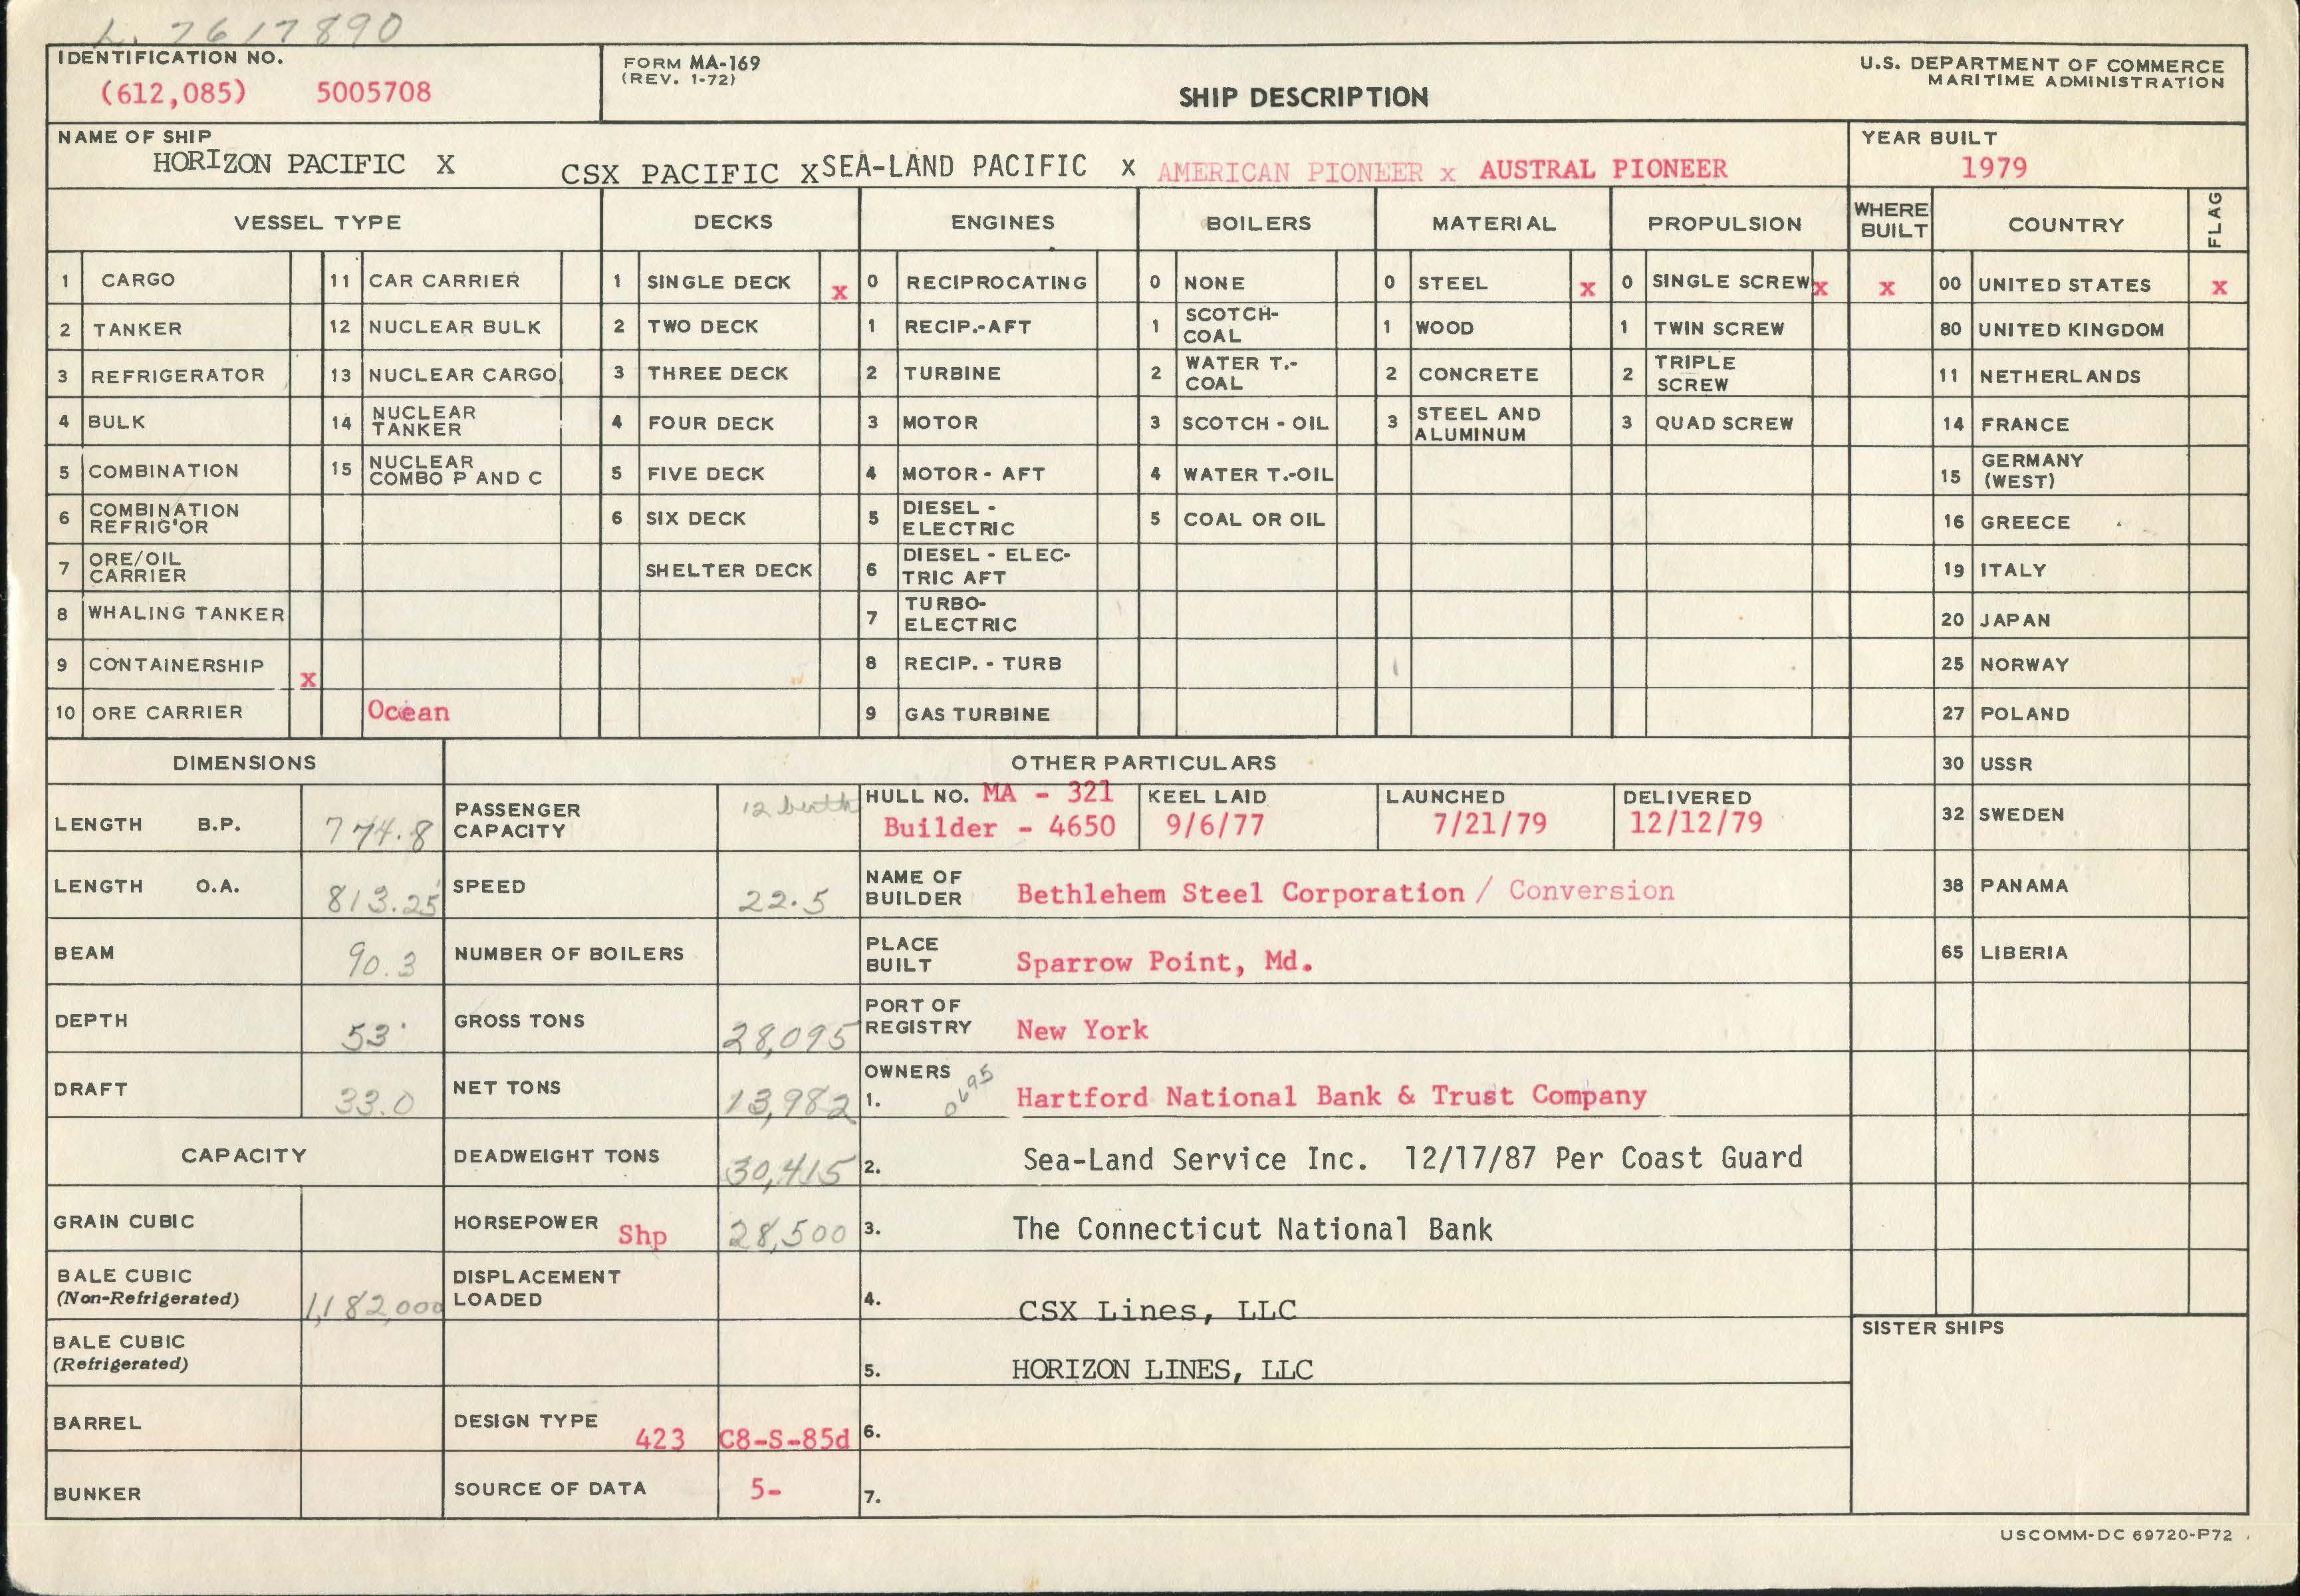 L. 7617890
IDENTIFICATION NO.
(612,085) 5005708
FORM MA-169
(REV. 1-72)
SHIP DESCRIPTION
U.S. DEPARTMENT OF COMMERCE
MARITIME ADMINISTRATION
NAME OF SHIP
HORIZON PACIFIC X CSX PACIFIC X SEA-LAND PACIFIC x AMERICAN PIONEER x AUSTRAL PIONEER
YEAR BUILT
1979
VESSEL TYPE DECKS ENGINES BOILERS MATERIAL PROPULSION WHERE BUILT COUNTRY FLAG
1 CARGO 11 CAR CARRIER 1 SINGLE DECK x 0 RECIPROCATING 0 NONE 0 STEEL x 0 SINGLE SCREW x x 00 UNITED STATES x
2 TANKER 12 NUCLEAR BULK 2 TWO DECK 1 RECIP.-AFT 1 SCOTCH-COAL 1 WOOD 1 TWIN SCREW 80 UNITED KINGDOM
3 REFRIGERATOR 13 NUCLEAR CARGO 3 THREE DECK 2 TURBINE 2 WATER T.-COAL 2 CONCRETE 2 TRIPLE SCREW 11 NETHERLANDS
4 BULK 14 NUCLEAR TANKER 4 FOUR DECK 3 MOTOR 3 SCOTCH - OIL 3 STEEL AND ALUMINUM 3 QUAD SCREW 14 FRANCE
5 COMBINATION 15 NUCLEAR COMBO P AND C 5 FIVE DECK 4 MOTOR - AFT 4 WATER T.-OIL 15 GERMANY (WEST)
6 COMBINATION REFRIG'OR 6 SIX DECK 5 DIESEL - ELECTRIC 5 COAL OR OIL 16 GREECE
7 ORE/OIL CARRIER SHELTER DECK 6 DIESEL - ELEC-TRIC AFT 19 ITALY
8 WHALING TANKER 7 TURBO-ELECTRIC 20 JAPAN
9 CONTAINERSHIP x 8 RECIP. - TURB 25 NORWAY
10 ORE CARRIER Ocean 9 GAS TURBINE 27 POLAND
DIMENSIONS OTHER PARTICULARS 30 USSR
LENGTH B.P. 774.8 PASSENGER CAPACITY 12 berth HULL NO. MA - 321 Builder - 4650 KEEL LAID 9/6/77 LAUNCHED 7/21/79 DELIVERED 12/12/79 32 SWEDEN
LENGTH O.A. 813.25' SPEED 22.5 NAME OF BUILDER Bethlehem Steel Corporation / Conversion 38 PANAMA
BEAM 90.3 NUMBER OF BOILERS PLACE BUILT Sparrow Point, Md. 65 LIBERIA
DEPTH 53' GROSS TONS 28,095 PORT OF REGISTRY New York
DRAFT 33.0 NET TONS 13,982 OWNERS 0695 1. Hartford National Bank & Trust Company
CAPACITY DEADWEIGHT TONS 30,415 2. Sea-Land Service Inc. 12/17/87 Per Coast Guard
GRAIN CUBIC HORSEPOWER Shp 28,500 3. The Connecticut National Bank
BALE CUBIC (Non-Refrigerated) 1,182,000 DISPLACEMENT LOADED 4. CSX Lines, LLC
BALE CUBIC (Refrigerated) 5. HORIZON LINES, LLC
SISTER SHIPS
BARREL DESIGN TYPE 423 C8-S-85d 6.
BUNKER SOURCE OF DATA 5- 7.
USCOMM-DC 69720-P72